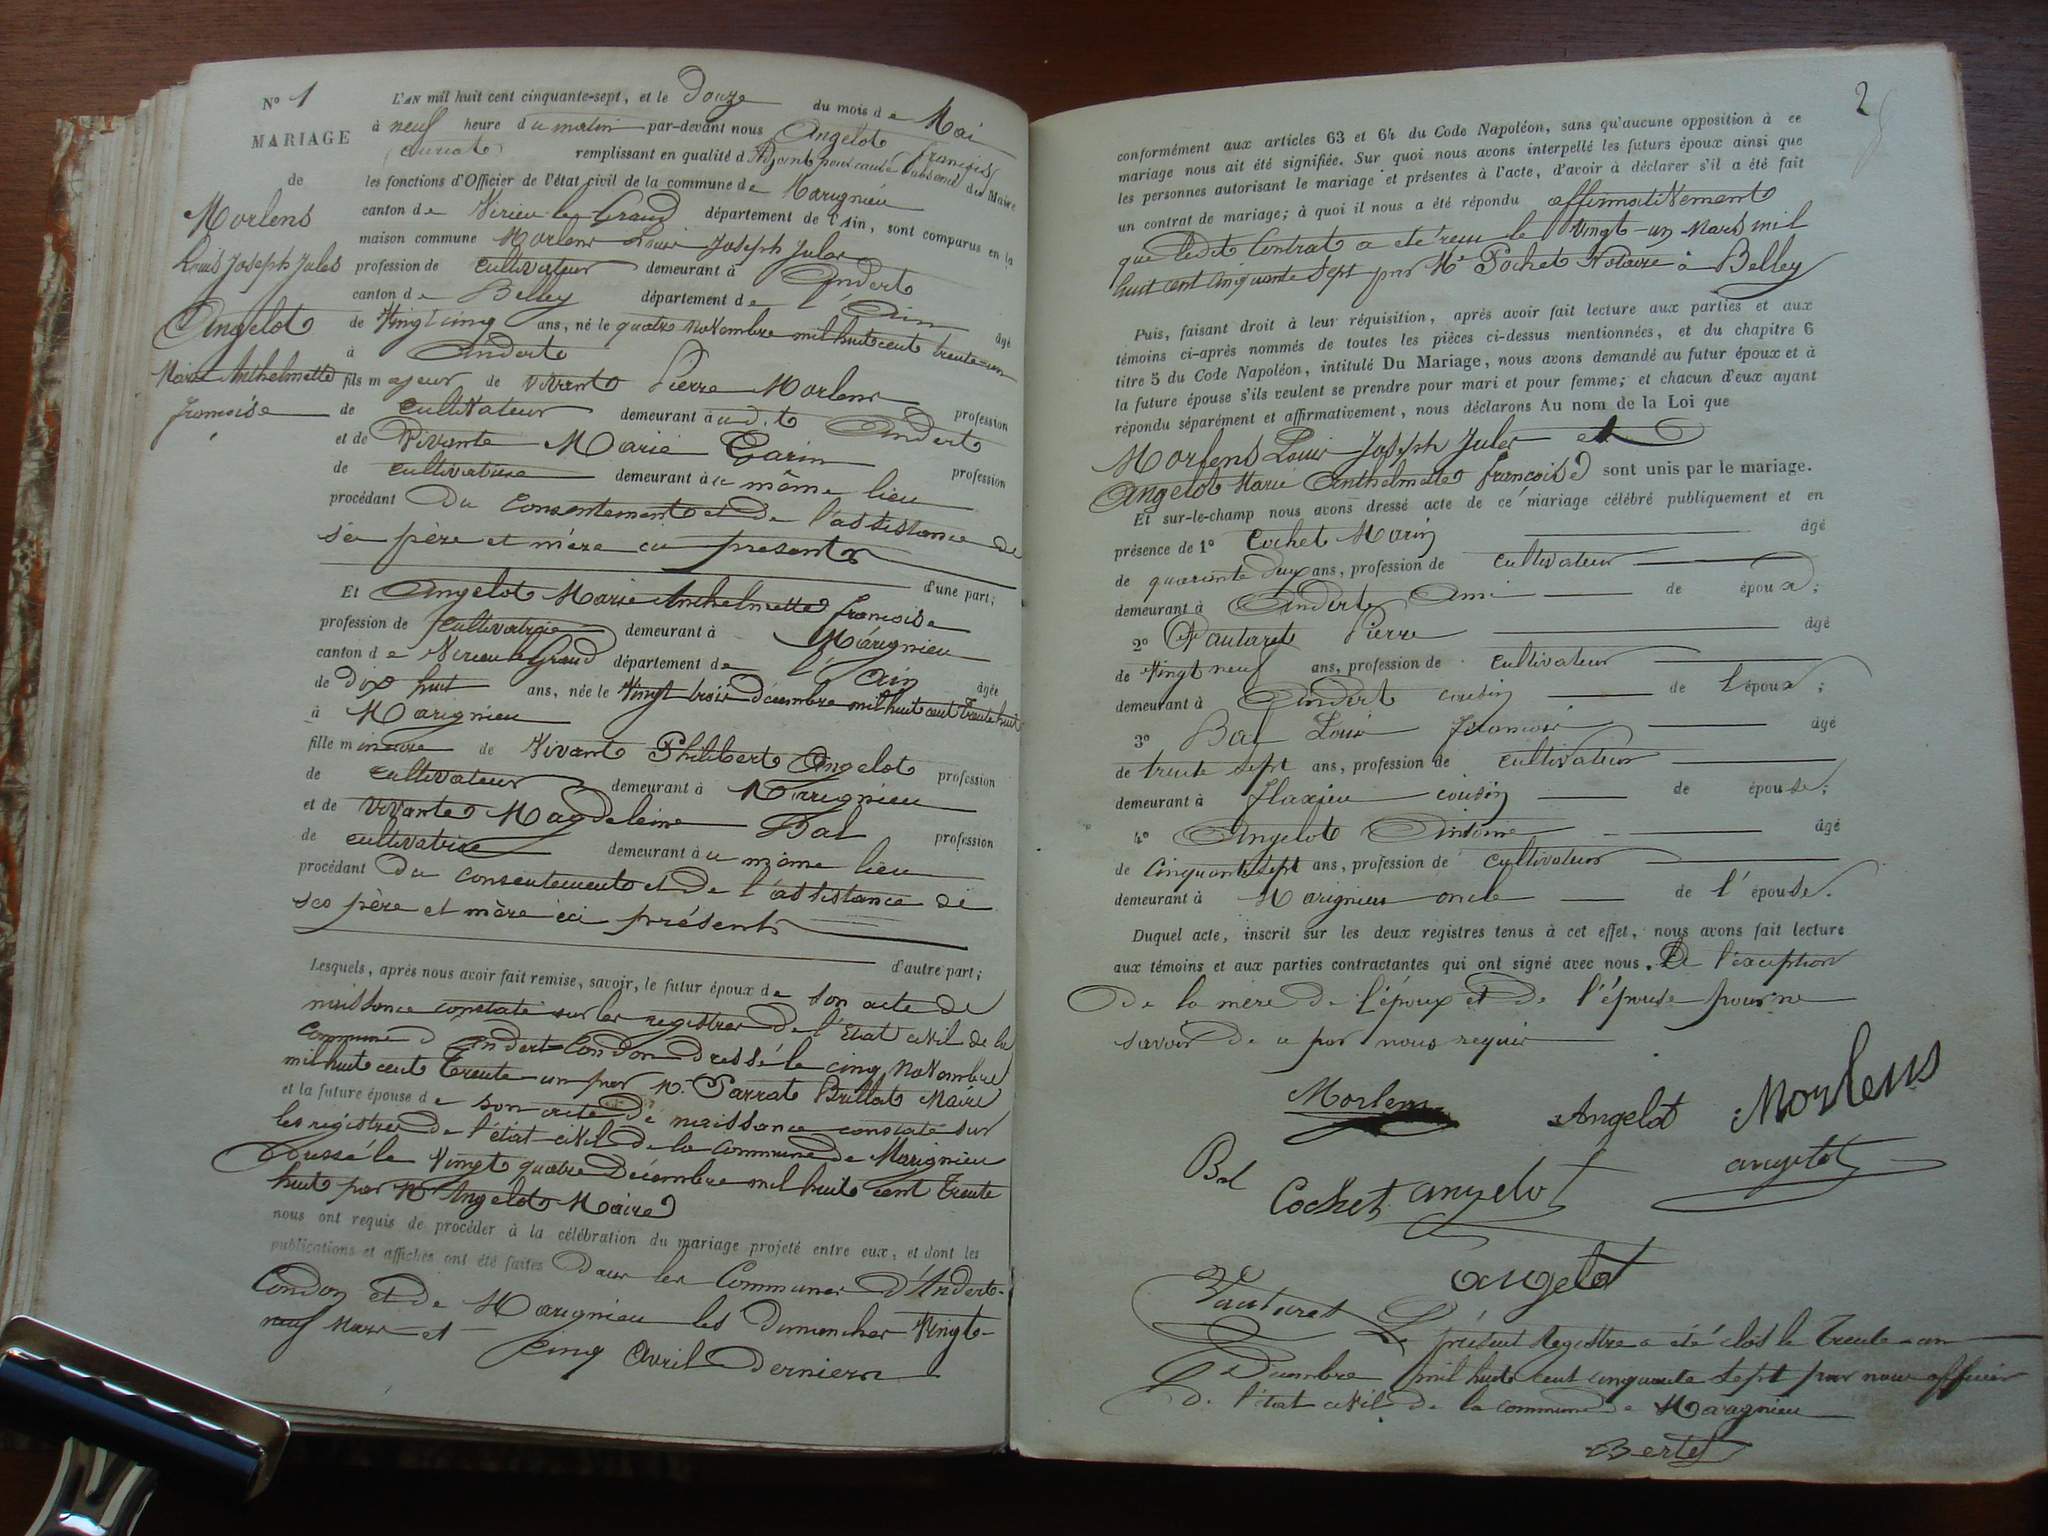 N° 1
MARIAGE
de
Morlens
Louis Joseph Jules
Angelot
Marie Anthelmette
françoise
L'AN mil huit cent cinquante-sept, et le Douze du mois de Mai
à neuf heure du matin par-devant nous Angelot françois
remplissant en qualité d'Adjoint pour cause d'absence du Maire
les fonctions d'Officier de l'état civil de la commune de Marignieu
canton de Virieu le Grand département de l'Ain, sont comparus en la
maison commune Morlens Louis Joseph Jules
profession de cultivateur demeurant à Andert
canton de Belley département de l'Ain âgé
de Vingt cinq ans, né le quatre Novembre mil huit cent trente-un
à Andert
fils majeur de vivant Pierre Morlens profession
de cultivateur demeurant àudit Andert
et de Vivante Marie Garin profession
de cultivatrice demeurant àu même lieu
procédant Du Consentement et de l'assistance de
ses père et mère ici presents
d'une part;
Et Angelot Marie Anthelmette françoise
profession de cultivatrice demeurant à Marignieu
canton de Virieu le Grand département de l'Ain âgée
de Dix huit ans, née le Vingt trois Décembre mil huit cent Trente huit
à Marignieu
fille mineure de Vivant Philibert Angelot profession
de cultivateur demeurant à Marignieu
et de Vivante Magdeleine Bal profession
de cultivatrice demeurant àu même lieu
procédant Du consentement et de l'assistance de
ses père et mère ici présents
d'autre part;
Lesquels, après nous avoir fait remise, savoir, le futur époux de son acte de
naissance constaté sur les registres de l'Etat civil de la
Commune d'Andert-Condon dressé le cinq Novembre
mil huit cent Trente-un par Mr. Parrat Brillat Maire
et la future épouse de son acte de naissance constaté sur
les registres de l'état-civil de la Commune de Marignieu
Dressé le Vingt quatre Décembre mil huit cent Trente
huit par Mr Angelot Maire
nous ont requis de procéder à la célébration du mariage projeté entre eux, et dont les
publications et affiches ont été faites Dans les Communes d'Andert-
Condon et de Marignieu les dimanches Vingt-
neuf Mars et cinq Avril derniers
2
conformément aux articles 63 et 64 du Code Napoléon, sans qu'aucune opposition à ce
mariage nous ait été signifiée. Sur quoi nous avons interpellé les futurs époux ainsi que
les personnes autorisant le mariage et présentes à l'acte, d'avoir à déclarer s'il a été fait
un contrat de mariage; à quoi il nous a été répondu affirmativement
que ledit Contrat a été reçu le Vingt-un Mars mil
huit cent cinquante sept par Me Pochet Notaire à Belley
Puis, faisant droit à leur réquisition, après avoir fait lecture aux parties et aux
témoins ci-après nommés de toutes les pièces ci-dessus mentionnées, et du chapitre 6
titre 5 du Code Napoléon, intitulé Du Mariage, nous avons demandé au futur époux et à
la future épouse s'ils veulent se prendre pour mari et pour femme; et chacun d'eux ayant
répondu séparément et affirmativement, nous déclarons Au nom de la Loi que
Morlens Louis Joseph Jules et
Angelot Marie Anthelmette françoise sont unis par le mariage.
Et sur-le-champ nous avons dressé acte de ce mariage célébré publiquement et en
présence de 1° Cochet Marin âgé
de quarante deux ans, profession de cultivateur
demeurant à Andert Ami de époux;
2° Vautaret Pierre âgé
de Vingt neuf ans, profession de cultivateur
demeurant à Andert cousin de l'époux;
3° Bal Louis François âgé
de trente sept ans, profession de cultivateur
demeurant à Flaxieu cousin de épouse;
4° Angelot Antoine âgé
de Cinquante sept ans, profession de cultivateur
demeurant à Marignieu oncle de l'épouse.
Duquel acte, inscrit sur les deux registres tenus à cet effet, nous avons fait lecture
aux témoins et aux parties contractantes qui ont signé avec nous. A l'exception
de la mère de l'époux et de l'épouse pour ne
savoir de ce par nous requis
Morlens Angelot Morlens
Bal Cochet angelot angelot
angelot
Vautaret
Le présent Registre a été clos le Trente-un
Décembre mil huit cent cinquante sept par nous officier
de l'état civil de la commune de Marignieu